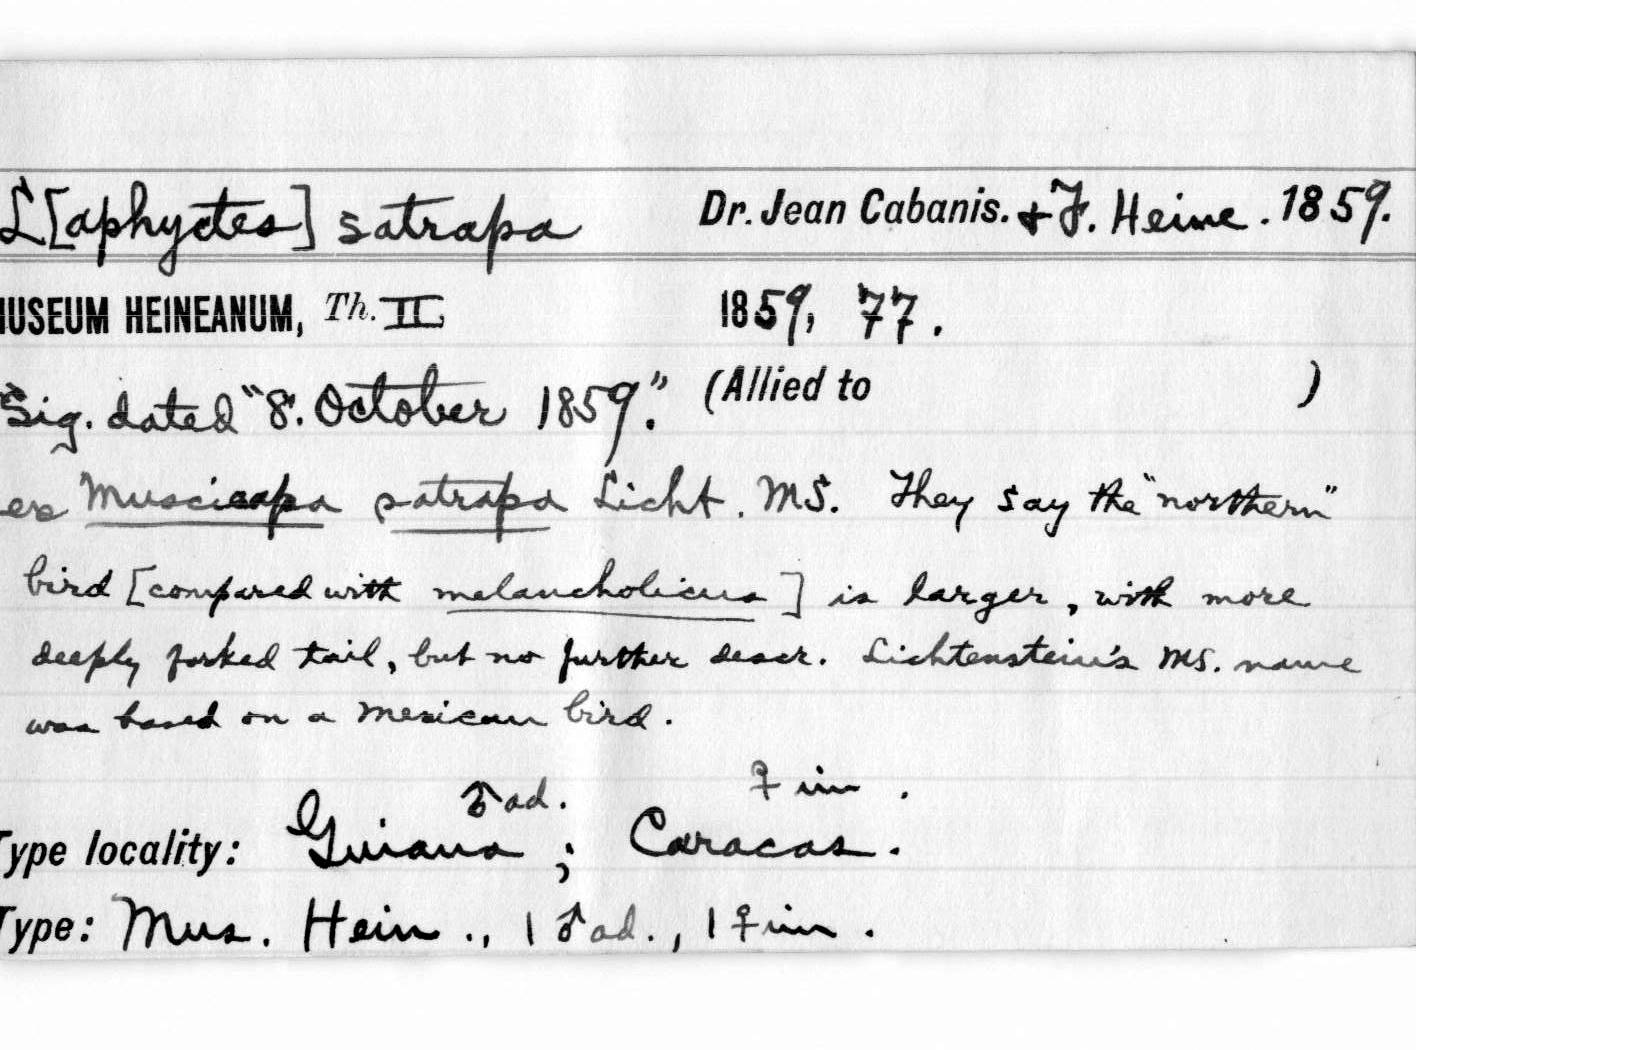 L[aphyctes] satrapa Dr. Jean Cabanis. & F. Heine. 1859.
MUSEUM HEINEANUM, Th. II 1859, 77.
Sig. dated "8. October 1859." (Allied to )
ex Muscicapa satrapa Licht. MS. They say the "northern"
bird [compared with melancholicus] is larger, with more
deeply forked tail, but no further descr. Lichtenstein's MS. name
was based on a Mexican bird.
♂ ad. ♀ im.
Type locality: Guiana; Caracas.
Type: Mus. Hein., 1 ♂ ad., 1 ♀ im.